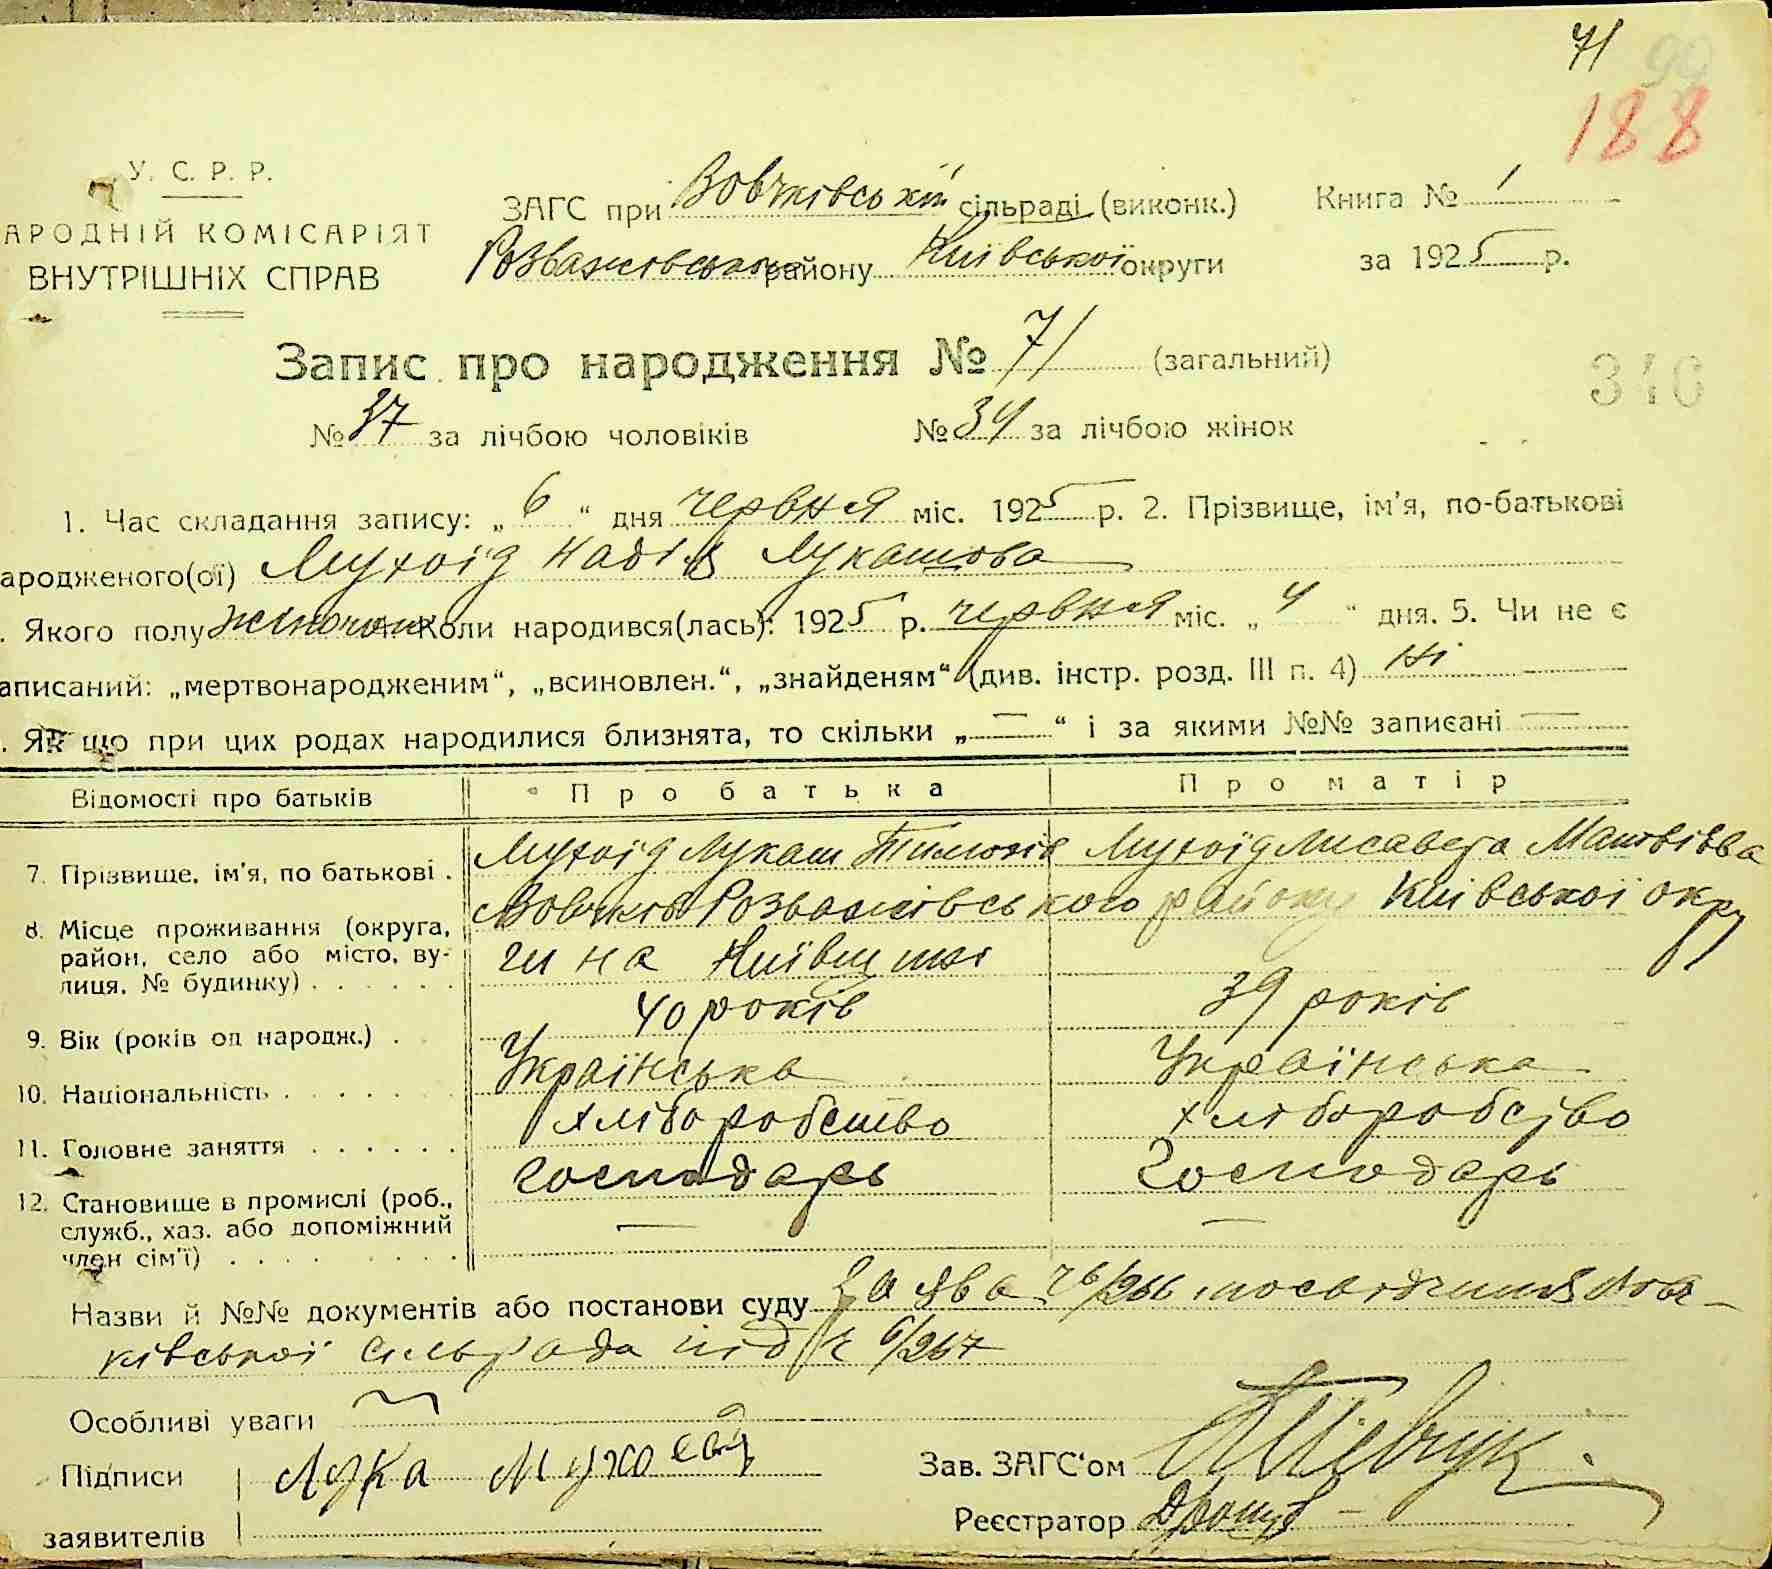 71
99
188
У. С. Р. Р.
АРОДНІЙ КОМІСАРІЯТ
ВНУТРІШНІХ СПРАВ
ЗАГС при Вовчківській сільраді (виконк.)
Книга № 1
Розважівського району Київської округи
за 1925 р.
Запис про народження № 71 (загальний)
346
№ 37 за лічбою чоловіків № 34 за лічбою жінок
1. Час складання запису: „ 6 “ дня червня міс. 1925 р. 2. Прізвище, ім'я, по-батькові
ародженого(ої) Мухоїд Надія Лукашова
. Якого полу жіночого Коли народився(лась): 1925 р. червня міс. „ 4 “ дня. 5. Чи не є
аписаний: „мертвонародженим“, „всиновлен.“, „знайденям“ (див. інстр. розд. III п. 4) ні
. Як що при цих родах народилися близнята, то скільки „ — “ і за якими №№ записані —
Відомості про батьків Про батька Про матір
7. Прізвище, ім'я, по батькові . Мухоїд Лукаш Тимохів Мухоїд Лисавета Матвівва
8. Місце проживання (округа, район, село або місто, вулиця, № будинку) . . . . . . Вовчків Розважівського району Київської окру
ги на Київщині
9. Вік (років од народж.) . 40 років 39 років
10. Національність . . . . . . . Українська Українська
11. Головне заняття . . . . . . Хліборобство хліборобство
12. Становище в промислі (роб., служб., хаз. або допоміжний член сім'ї) . . . . . . . . господарь господарь
— —
Назви й №№ документів або постанови суду Заява
ківської сільрада під ч 6/267
Особливі уваги
Підписи заявителів Лука Мухоєд
Зав. ЗАГС'ом
Реєстратор